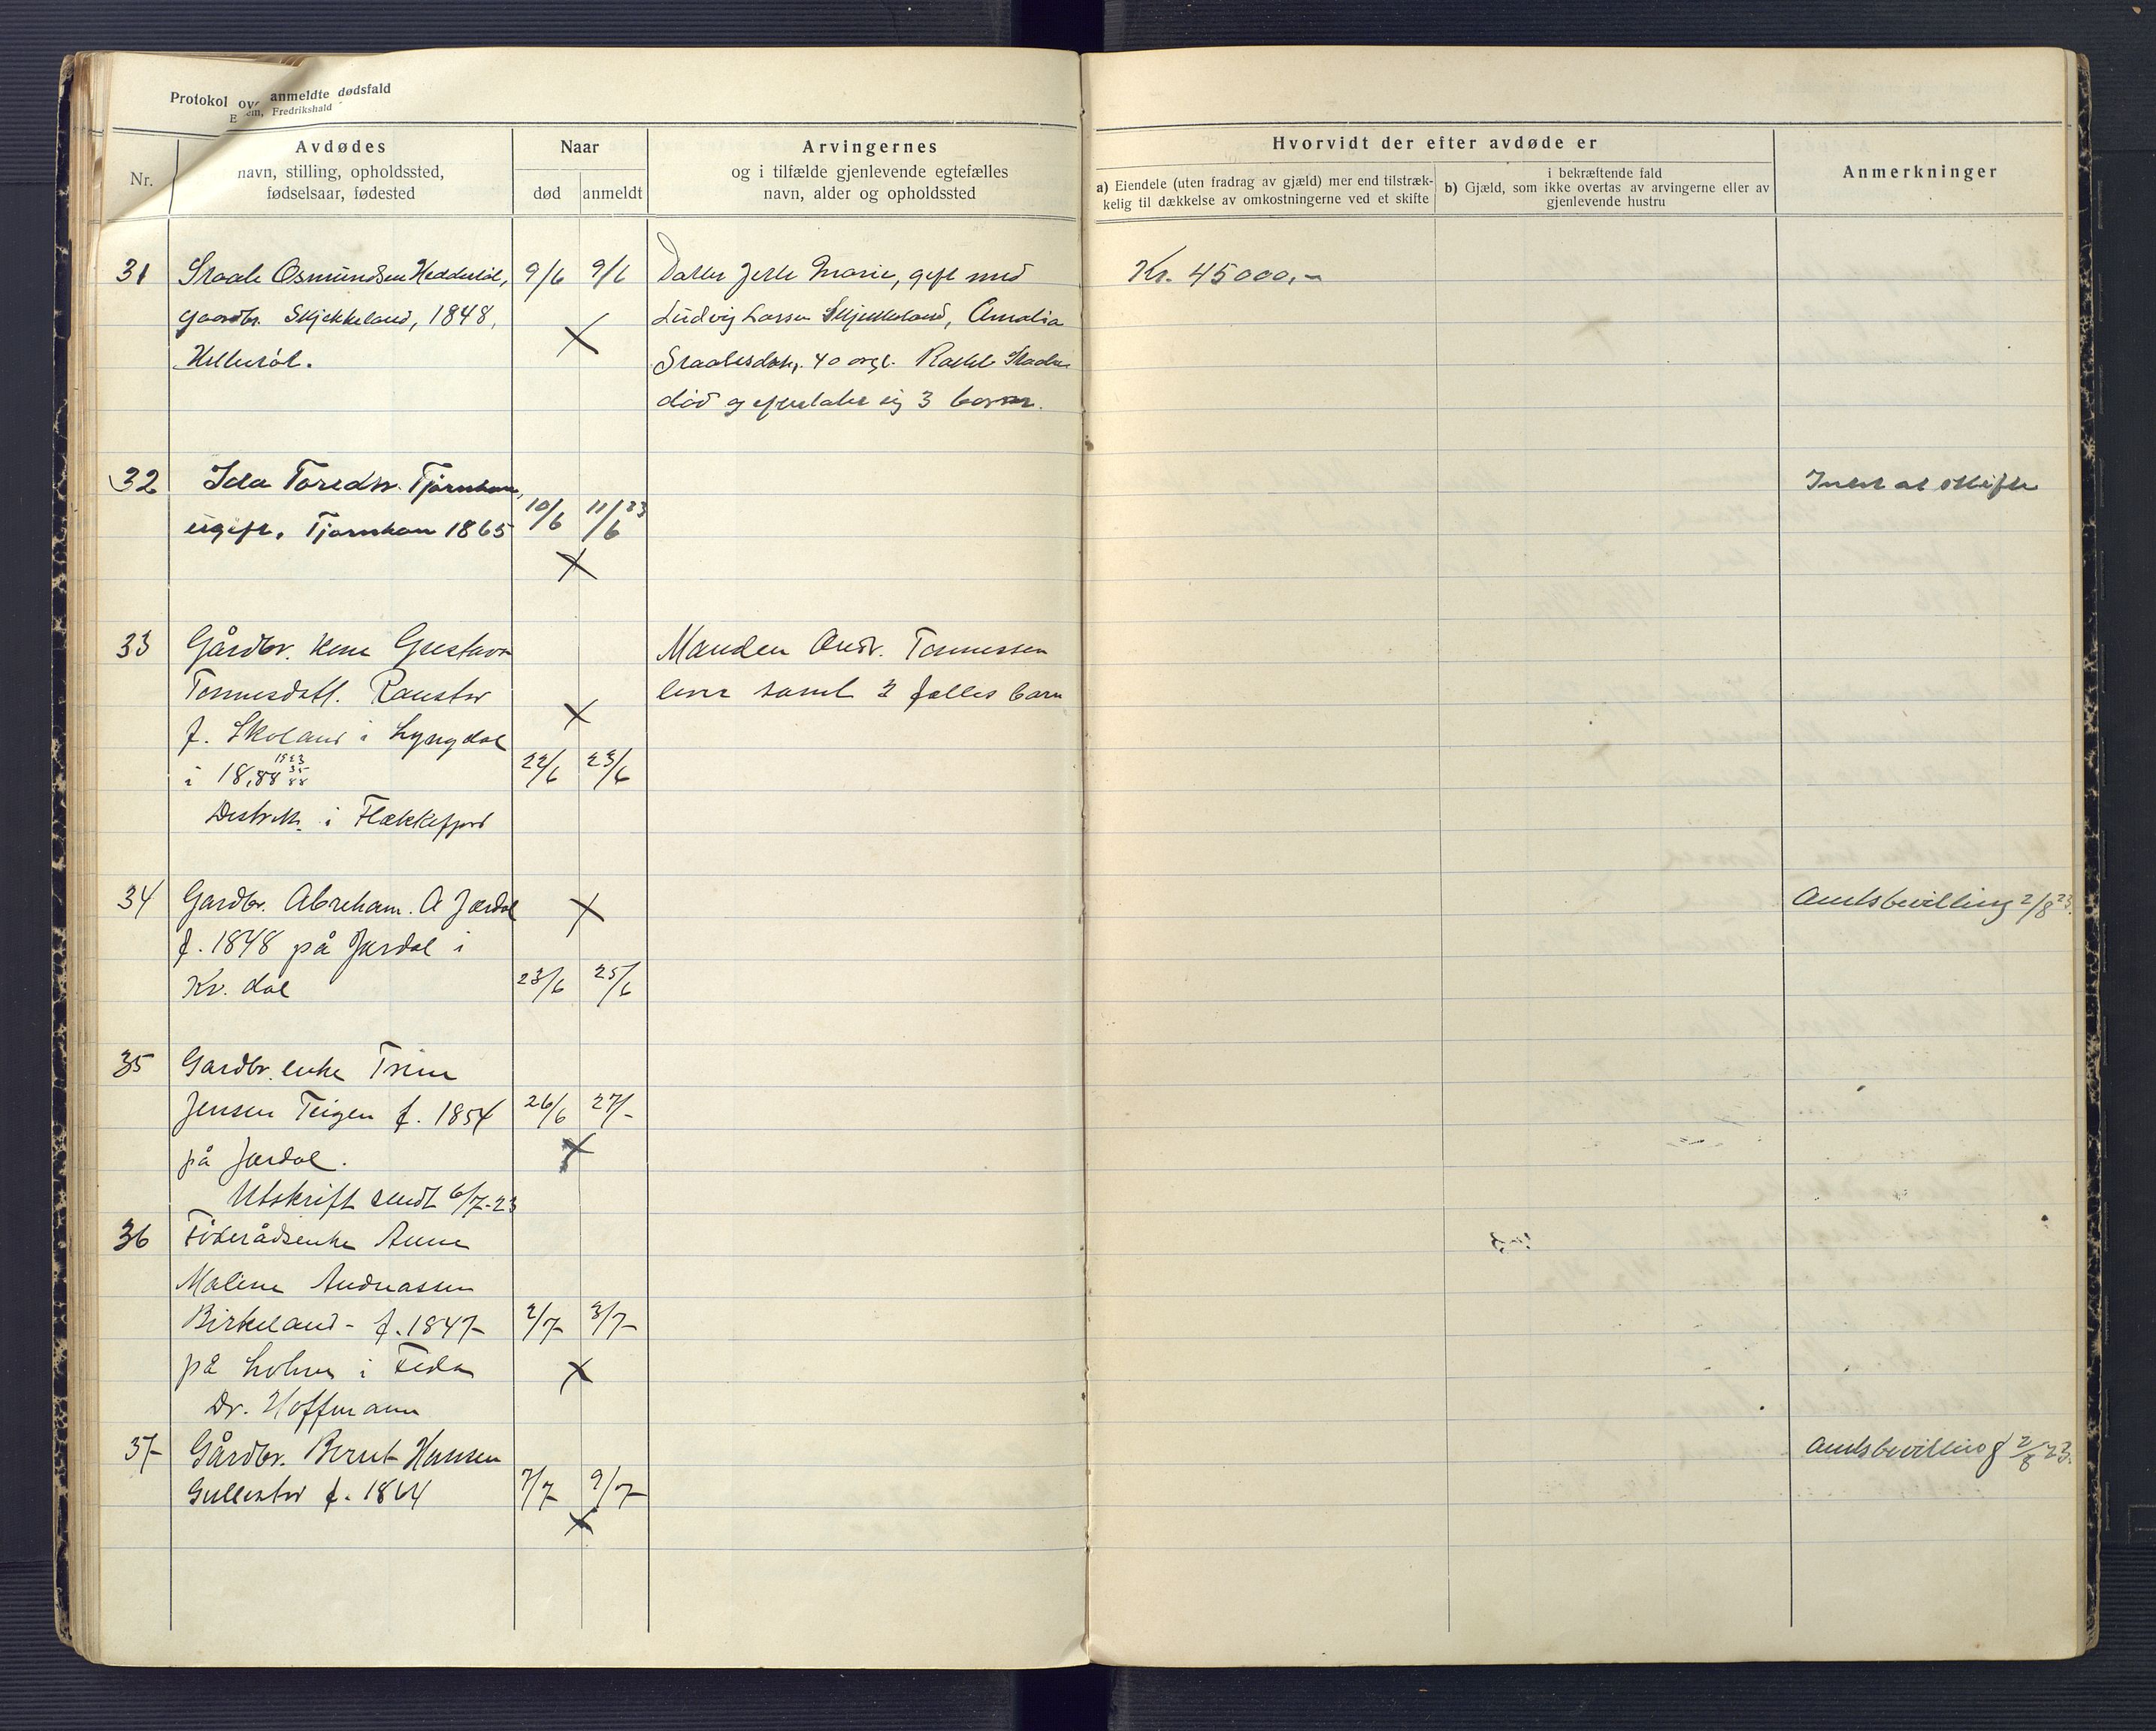 Protokol over anmeldte dødsfald
E em, Fredrikshald
Nr.
Avdødes
navn, stilling, opholdssted,
fødselsaar, fødested
Naar
død
anmeldt
Arvingernes
og i tilfælde gjenlevende egtefælles
navn, alder og opholdssted
Hvorvidt der efter avdøde er
a) Eiendele (uten fradrag av gjæld) mer end tilstræk-
kelig til dækkelse av omkostningerne ved et skifte
i bekræftende fald
b) Gjæld, som ikke overtas av arvingerne eller av
gjenlevende hustru
Anmerkninger
31 Sraale Osmundsen 9/6 9/6 Datter Marie, gift med Kr. 45000,-
gaardbr. Skjekkeland, 1848, Ludvig Larsen Skjekkeland, Amalia
Sraalesdatr. 40
død og efterlater sig 3 barn.
32 Ida Toredtr. Tjørnhom, Intet at skifte
ugift, Tjørnhom 1865 10/6 11/6 23
33 Gårdbr. kone Gustava Manden Andr. Tønnessen
Tønnesdatt. Raustøl lever samt 3 fælles barn
f. Skoland i Lyngdal
i 18,88 1923 35 88 22/6 23/6
Distrikts. i Flekkefjord
34 Gardbr. Abreham. A Jerdal Amtsbevilling 2/8 23.
f. 1848 på Jerdal i
Kv. dal 23/6 25/6
35 Gardbr. enke Trine
Jensen Teigen f. 1854 26/6 27/-
på Jerdal.
Utskrift sendt 6/7-23
36 Føderådsenke Anne
Maline Andreassen
Birkeland - f. 1847 2/7 3/7
på i Feda
Dr. Hoffmann
37 Gårdbr. Bernt Hansen Amtsbevilling 2/8 23.
f. 1864 7/7 9/7